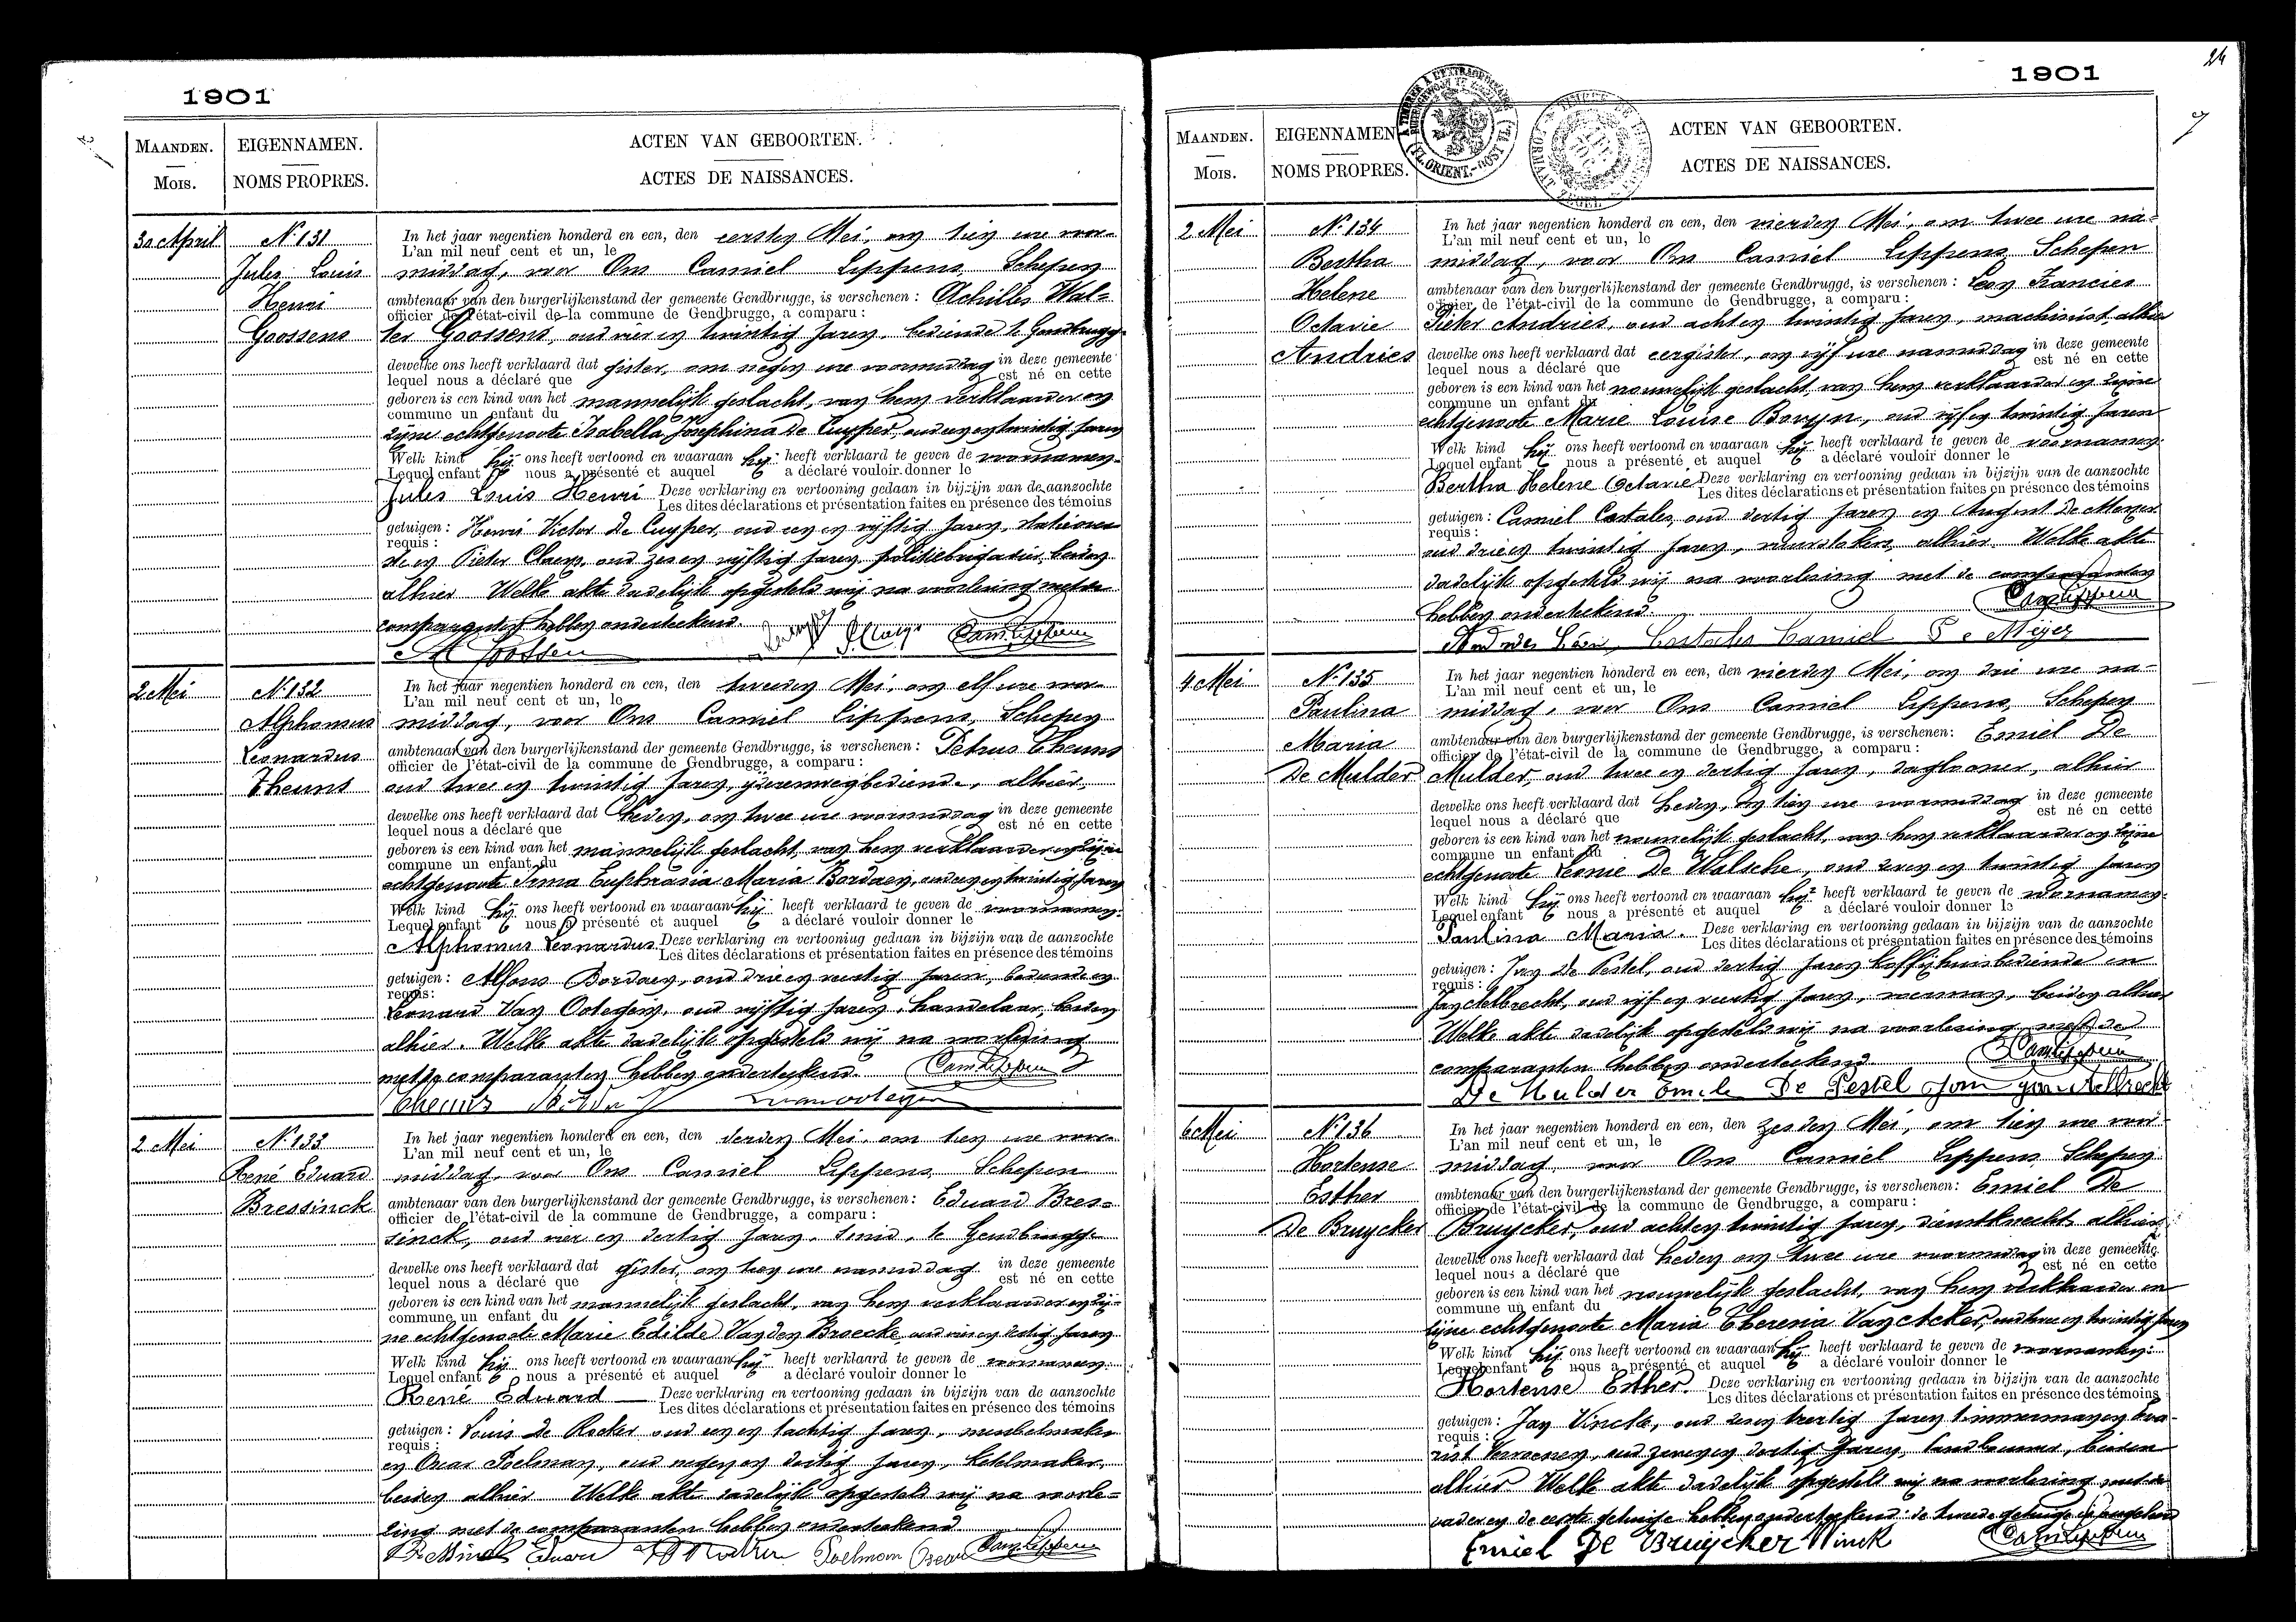 1901
MAANDEN.
MOIS.
EIGENNAMEN.
NOMS PROPRES.
ACTEN VAN GEBOORTEN.
ACTES DE NAISSANCES.
30 April
N. 131
Jules Louis
Henri
Goossens
In het jaar negentien honderd en een, den eersten Mei, om tien ure voor-
L'an mil neuf cent et un, le
middag, voor Ons Camiel Lippens, Schepen
ambtenaar van den burgerlijkenstand der gemeente Gendbrugge, is verschenen : Achilles Wal-
officier de l'état-civil de la commune de Gendbrugge, a comparu :
ter Goossens, oud vier en twintig jaren, bediende te Gendbrugge
dewelke ons heeft verklaard dat gister, om negen ure voormiddag in deze gemeente
lequel nous a déclaré que est né en cette
geboren is een kind van het mannelijk geslacht, van hem verklaarder en
commune un enfant du
zijne echtgenoote Isabella Josephina De Cuyper, oud een en twintig jaren
Welk kind hij ons heeft vertoond en waaraan hij heeft verklaard te geven de voornamen.
Lequel enfant nous a présenté et auquel a déclaré vouloir donner le
Jules Louis Henri Deze verklaring en vertooning gedaan in bijzijn van de aanzochte
Les dites déclarations et présentation faites en présence des témoins
getuigen : Henri Victor De Cuyper, oud een en vijftig jaren,
requis :
en Pieter Claeys, oud zes en vijftig jaren, politiebrigadier, beiden
alhier Welke akte dadelijk opgesteld wij na voorlezing met de
comparanten hebben onderteekend.
2 Mei
N. 132
Alphonsus
Leonardus
Theuns
In het jaar negentien honderd en een, den tweeden Mei, om elf ure voor-
L'an mil neuf cent et un, le
middag, voor Ons Camiel Lippens, Schepen
ambtenaar van den burgerlijkenstand der gemeente Gendbrugge, is verschenen : Petrus Theuns
officier de l'état-civil de la commune de Gendbrugge, a comparu :
oud twee en twintig jaren, ijzerenwegbediende, alhier,
dewelke ons heeft verklaard dat heden, om twee ure voormiddag in deze gemeente
lequel nous a déclaré que est né en cette
geboren is een kind van het mannelijk geslacht, van hem verklaarder en zijne
commune un enfant du
echtgenoote Irma Euphrasia Maria Bordaey, oud een en twintig jaren
Welk kind hij ons heeft vertoond en waaraan hij heeft verklaard te geven de voornamen.
Lequel enfant nous a présenté et auquel a déclaré vouloir donner le
Alphonsus Leonardus Deze verklaring en vertooning gedaan in bijzijn van de aanzochte
Les dites déclarations et présentation faites en présence des témoins
getuigen : Alfons Bordaey, oud drie en veertig jaren, bediende en
requis :
Leonard Van Ooteghem, oud vijftig jaren, handelaar, beiden
alhier. Welke akte dadelijk opgesteld wij na voorlezing
met de comparanten hebben onderteekend.
Theuns
2 Mei
N. 133
René Eduard
Bressinck
In het jaar negentien honderd en een, den derden Mei, om tien ure voor-
L'an mil neuf cent et un, le
middag, voor Ons Camiel Lippens, Schepen
ambtenaar van den burgerlijkenstand der gemeente Gendbrugge, is verschenen : Eduard Bres-
officier de l'état-civil de la commune de Gendbrugge, a comparu :
sinck, oud vier en dertig jaren, smid, te Gendbrugge
dewelke ons heeft verklaard dat gister, om tien ure namiddag in deze gemeente
lequel nous a déclaré que est né en cette
geboren is een kind van het mannelijk geslacht, van hem verklaarder en zij-
commune un enfant du
ne echtgenoote Marie Edilde Van den Broecke, oud vier en dertig jaren
Welk kind hij ons heeft vertoond en waaraan hij heeft verklaard te geven de voornamen.
Lequel enfant nous a présenté et auquel a déclaré vouloir donner le
René Eduard Deze verklaring en vertooning gedaan in bijzijn van de aanzochte
Les dites déclarations et présentation faites en présence des témoins
getuigen : Louis De Rocker oud een en tachtig jaren, meubelmaker
requis :
en Oscar Poelman, oud negen en dertig jaren,
beiden alhier Welke akte dadelijk opgesteld wij na voorle-
zing met de comparanten hebben onderteekend.
Bressinck Eduard Poelman Oscar
24
1901
MAANDEN.
MOIS.
EIGENNAMEN
NOMS PROPRES.
ACTEN VAN GEBOORTEN.
ACTES DE NAISSANCES.
2 Mei
N. 134
Bertha
Helene
Octavie
Andries
In het jaar negentien honderd en een, den vierden Mei, om twee ure na-
L'an mil neuf cent et un, le
middag, voor Ons Camiel Lippens, Schepen
ambtenaar van den burgerlijkenstand der gemeente Gendbrugge, is verschenen : Leon Francies
officier de l'état-civil de la commune de Gendbrugge, a comparu :
Pieter Andries, oud acht en twintig jaren, machinist, alhier
dewelke ons heeft verklaard dat eergister, om vijf ure namiddag in deze gemeente
lequel nous a déclaré que est né en cette
geboren is een kind van het vrouwelijk geslacht, van hem verklaarder en zijne
commune un enfant du
echtgenoote Marie Louise Bovyn, oud vijf en twintig jaren
Welk kind hij ons heeft vertoond en waaraan hij heeft verklaard te geven de voornamen.
Lequel enfant nous a présenté et auquel a déclaré vouloir donner le
Bertha Helene Octavie Deze verklaring en vertooning gedaan in bijzijn van de aanzochte
Les dites déclarations et présentation faites en présence des témoins
getuigen : Camiel Castales, oud dertig jaren en August De Meyer
requis :
oud drie en twintig jaren, vuurstokers, alhier. Welke akte
dadelijk opgesteld wij na voorlezing met de comparanten
hebben onderteekend.
Andries Leon, Castales Camiel De Meyer
4 Mei
N. 135
Paulina
Maria
De Mulder
In het jaar negentien honderd en een, den vierden Mei, om drie ure na-
L'an mil neuf cent et un, le
middag, voor Ons Camiel Lippens, Schepen
ambtenaar van den burgerlijkenstand der gemeente Gendbrugge, is verschenen : Emiel De
officier de l'état-civil de la commune de Gendbrugge, a comparu :
Mulder, oud twee en dertig jaren, daglooner, alhier
dewelke ons heeft verklaard dat heden, om tien ure voormiddag in deze gemeente
lequel nous a déclaré que est né en cette
geboren is een kind van het vrouwelijk geslacht, van hem verklaarder en zijne
commune un enfant du
echtgenoote Leonie De Walsche, oud zeven en twintig jaren
Welk kind hij ons heeft vertoond en waaraan hij heeft verklaard te geven de voornamen.
Lequel enfant nous a présenté et auquel a déclaré vouloir donner le
Paulina Maria. Deze verklaring en vertooning gedaan in bijzijn van de aanzochte
Les dites déclarations et présentation faites en présence des témoins
getuigen : Jan De Pestel, oud dertig jaren koffijhuisbediende en
requis :
Jan Aelbrecht, oud vijf en veertig jaren, voerman, beiden alhier
Welke akte dadelijk opgesteld wij na voorlezing met de
comparanten hebben onderteekend.
De Mulder Emile De Pestel Jan Aelbrecht
6 Mei
N. 136
Hortense
Esther
De Bruycker
In het jaar negentien honderd en een, den zesden Mei, om tien ure voor-
L'an mil neuf cent et un, le
middag, voor Ons Camiel Lippens, Schepen
ambtenaar van den burgerlijkenstand der gemeente Gendbrugge, is verschenen : Emiel De
officier de l'état-civil de la commune de Gendbrugge, a comparu :
Bruycker, oud acht en twintig jaren, dienstknecht, alhier
dewelke ons heeft verklaard dat heden om twee ure voormiddag in deze gemeente
lequel nous a déclaré que est né en cette
geboren is een kind van het vrouwelijk geslacht, van hem verklaarder en
commune un enfant du
zijne echtgenoote Maria Theresia Van Acker, oud twee en twintig jaren
Welk kind hij ons heeft vertoond en waaraan hij heeft verklaard te geven de voornamen.
Lequel enfant nous a présenté et auquel a déclaré vouloir donner le
Hortense Esther. Deze verklaring en vertooning gedaan in bijzijn van de aanzochte
Les dites déclarations et présentation faites en présence des témoins
getuigen : Jan Vinck, oud jaren timmerman en
requis :
oud zeven en dertig jaren, landbouwer, beiden
alhier Welke akte dadelijk opgesteld wij na voorlezing met de
vader en de eerste getuige hebben onderteekend: de tweede getuige
Emiel De Bruycker Vinck